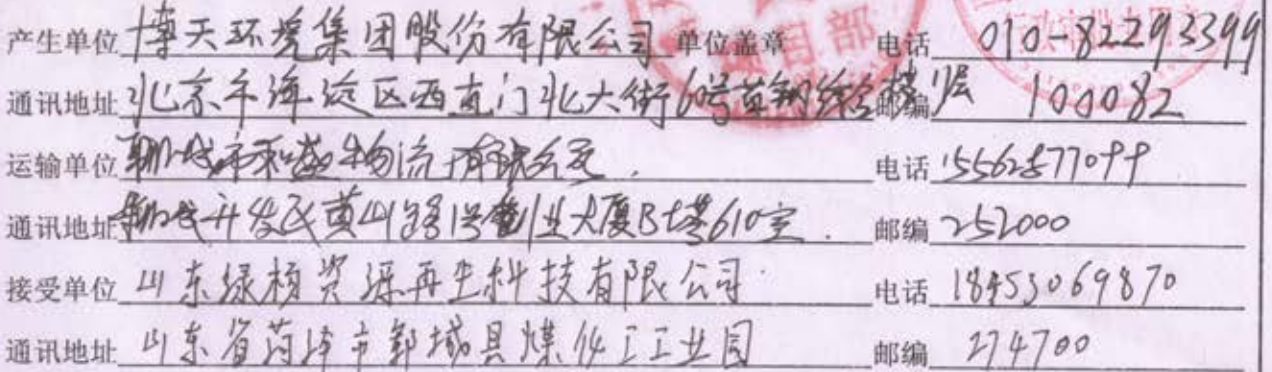 产生单位 博天环境集团股份有限公司 单位盖章 电话 010-82293399
通讯地址 北京市海淀区西直门北大街60号首钢综合楼 层 邮编 100082
运输单位 聊城市和 物流有限公司 电话 15562577099
通讯地址 聊城开发区黄山路1号 业大厦B塔610室 邮编 252000
接受单位 山东绿 资源再生科技有限公司 电话 18453069870
通讯地址 山东省菏泽市郓城县煤化工工业园 邮编 274700
项目部